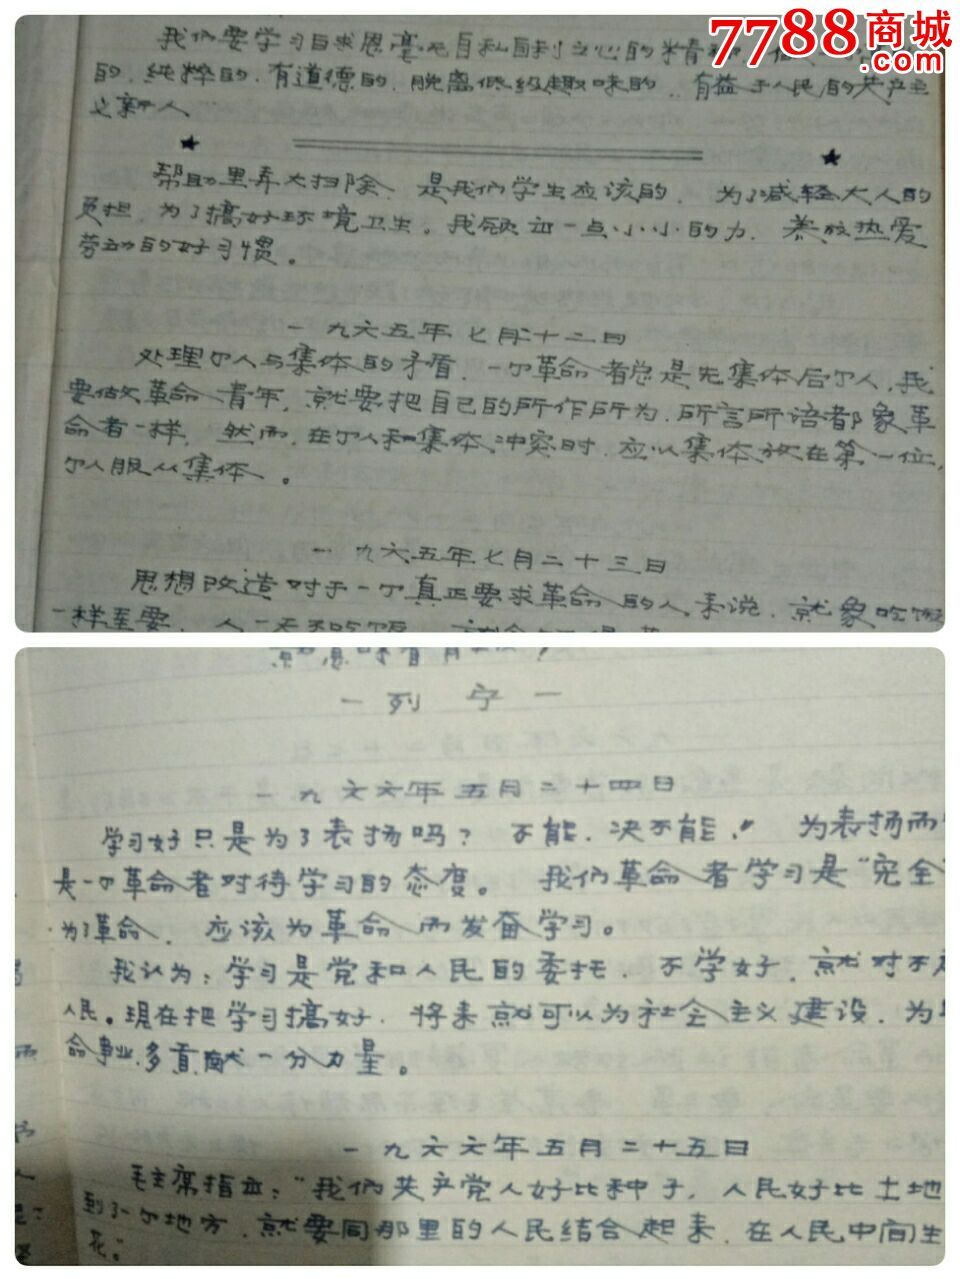 7788商城
.com
我们要学习白求恩毫无自私自利之心的精神
的．纯粹的．有道德的．脱离低级趣味的．有益于人民的共产主
义新人
帮助里弄大扫除．是我们学生应该的．为了减轻大人的
负担．为了搞好环境卫生。我领出一点小小的力．养成热爱
劳动的好习惯。
一九六五年七月十二日
处理个人与集体的矛盾．一个革命者总是先集体后个人．我
要做革命青年．就要把自己的所作所为．所言所语都象革
命者一样．然而．在个人和集体冲突时．应以集体放在第一位．
个人服从集体。
一九六五年七月二十三日
思想改造对于一个真正要求革命的人来说．就象吃饭
一样至要．人一天不吃饭
就意味着
－列宁－
一九六六年五月二十四日
学习好只是为了表扬吗？不能．决不能．〃为表扬而
是一个革命者对待学习的态度。我们革命者学习是“完全
为了革命．应该为革命而发奋学习。
我认为：学习是党和人民的委托．不学好．就对不起
人民。现在把学习搞好．将来就可以为社会主义建设．为
命事业多贡献一分力量。
一九六六年五月二十五日
毛主席指出：“我们共产党人好比种子．人民好比土地
到了一个地方．就要同那里的人民结合起来．在人民中间生
花。”